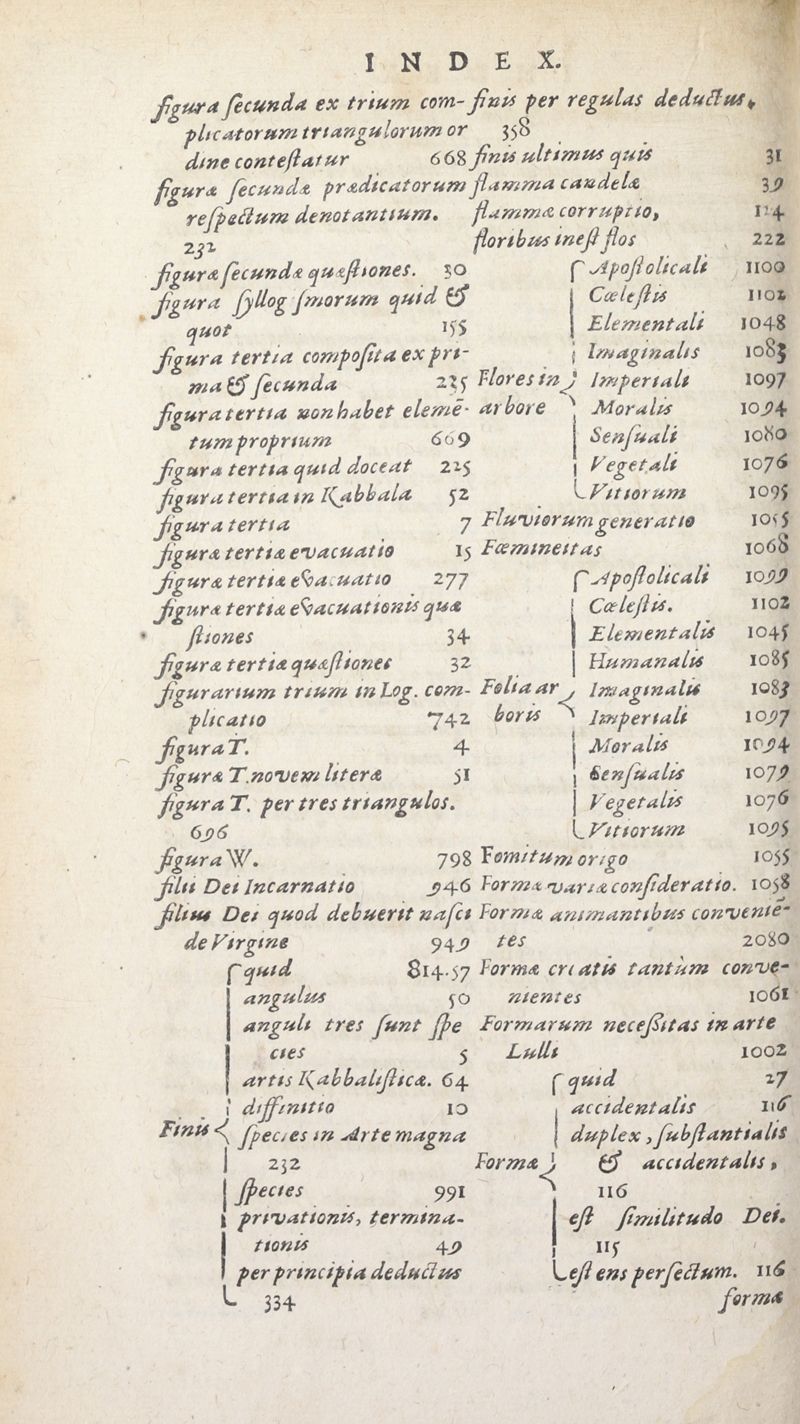 INDEX.
figura ſecunda ex trium com-
plicatorum triangulorum or
dine conteſtatur 668
figuræ ſecundæ prædicatorum
reſpectum denotantium.
232
figuræ ſecundæ quæſtiones. 30
figura ſyllogſmorum quid &
quot 155
figura tertia compoſita ex pri-
ma & ſecunda 225
figura tertia non habet elemē-
tum proprium 669
figura tertia quid doceat 225
figura tertia in Kabbala 52
figura tertia 7
figuræ tertiæ evacuatio 15
figuræ tertiæ evacuatio 277
figuræ tertiæ evacuationis quæ
ſtiones 34
figuræ tertiæ quæſtiones 32
figurarum trium in Log. com-
plicatio 742
figura T. 4
figuræ T. novem literæ 51
figura T. per tres triangulos.
696
figura W. 798
filii Dei Incarnatio 946
filius Dei quod debuerit naſci
de Virgine 949
Finis
quid 814.57
angulus 50
anguli tres ſunt ſpe
cies 5
artis Kabbaliſticæ. 64
diffinitio 10
ſpecies in Arte magna
232
ſpecies 991
privationis, termina-
tionis 49
per principia deductus
334
finis per regulas deductus,
358
finis ultimus quis 31
flamma candelæ 39
flammæ corruptio, 114
floribus ineſt flos 222
Flores in
arbore
Apoſtolicali 1100
Cœleſtis 1101
Elementali 1048
Imaginalis 1083
Imperiali 1097
Moralis 1094
Senſuali 1080
Vegetali 1076
Vitiorum 1095
Fluviorum generatio 1055
Fœmineitas 1068
Folia ar
boris
Apoſtolicali 1099
Cœleſtis. 1102
Elementalis 1045
Humanalis 1085
Imaginalis 1083
Imperiali 1097
Moralis 1094
Senſualis 1079
Vegetalis 1076
Vitiorum 1095
Fomitum origo 1055
Formæ variæ conſideratio. 1058
Formæ animantibus conveniē-
tes 2080
Formæ creatis tantùm conve-
nientes 1061
Formarum neceſsitas in arte
Lulli 1002
Forma
quid 27
accidentalis 116
duplex, ſubſtantialis
& accidentalis,
116
eſt ſimilitudo Dei.
115
eſt ens perfectum. 116
forma